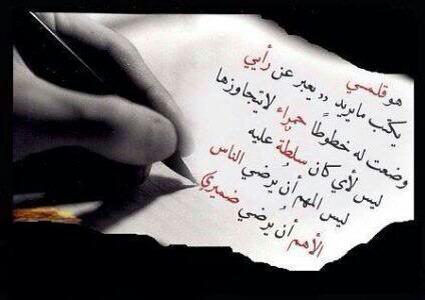 هو قلمي
يكتب مايريد ,, يعبر عن رأيي
وضعت له خطوطاً حمراء لايتجاوزها
ليس لأي كان سلطة عليه
ليس المهم أن يُرضي الناس
الأهم أن يرضي ضميري